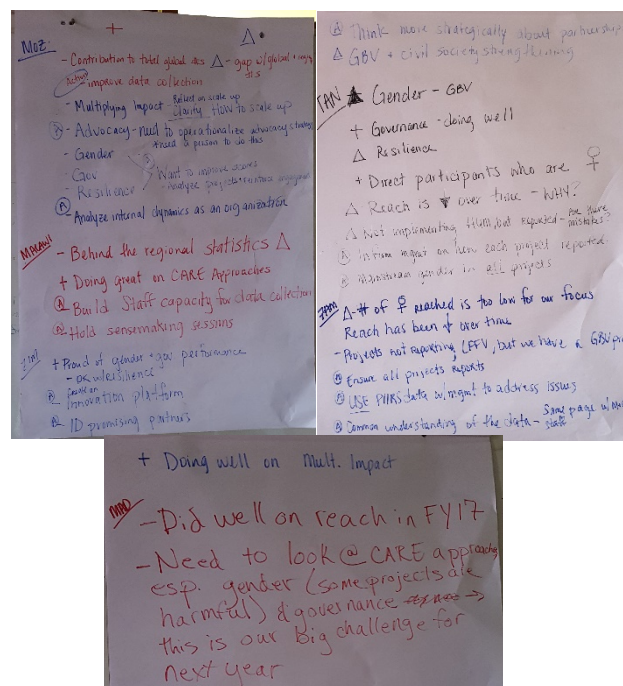 + Δ
Moz
- Contribution to total global #s Δ - gap w/global +
#s
Action - improve data collection
- Multiplying Impact - Reflect on scale up
clarity - How to scale up
Ⓐ - Advocacy - need to operationalize advocacy strategy
need a person to do this
- Gender
- Gov
- Resilience
Want to improve scores
- Analyze projects + reinforce
Ⓐ - Analyze internal dynamics as an organization
MALAWI
- Behind the regional statistics Δ
+ Doing great on CARE Approaches
Ⓐ Build Staff capacity for data collection
Ⓐ Hold sensemaking sessions
Zim
+ Proud of gender + gov performance
- ok w/resilience
Ⓐ focus on
innovation platform
Ⓐ ID promising partners
Ⓐ Think more strategically about partnership
Δ GBV + civil society strengthening
TAN
Δ Gender - GBV
+ Governance - doing well
Δ Resilience
+ Direct participants who are ♀
Δ Reach is ↓ over time - WHY?
Δ Not implementing HUM, but reported - Are there
mistakes?
Ⓐ on how each project reported
Ⓐ Mainstream gender in all projects
ZAM
Δ - # of ♀ reached is too low for our focus
Reach has been ↓ over time
- Projects not reporting LFFV, but we have a GBV
Ⓐ Ensure all projects reports
Ⓐ USE PIIRS data w/mgmt to address issues
Ⓐ Common understanding of the data - Same page w/
staff
+ Doing well on Mult. Impact
MAD
- Did well on reach in FY17
- Need to look @ CARE approaches
esp. gender (some projects are
harmful) & governance →
this is our Big challenge for
next year